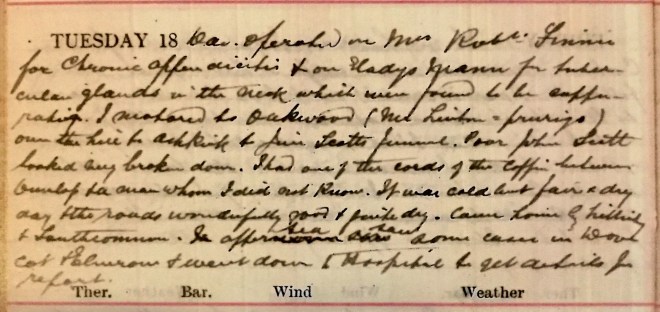 TUESDAY 18 Dav. operated on Mrs Robt. Linnie
for Chronic Appendicitis & on Gladys Mann for tuber-
cular glands in the neck which were found to be suppu-
rating. I motored to Oakwood (Mr Linton = prurigo)
over the hill to Ashkirk to Jim Scott's funeral. Poor John Scott
looked very broken down. I had one of the cords of the coffin between
Dunlop & a man whom I did not know. It was cold but fair & dry
day & the roads wonderfully good & quite dry. Came home by
& Southcommon. In after tea saw some cases in Dove
cot & Elmrow & went down to Hospital to get details for
report.
Ther. Bar. Wind Weather